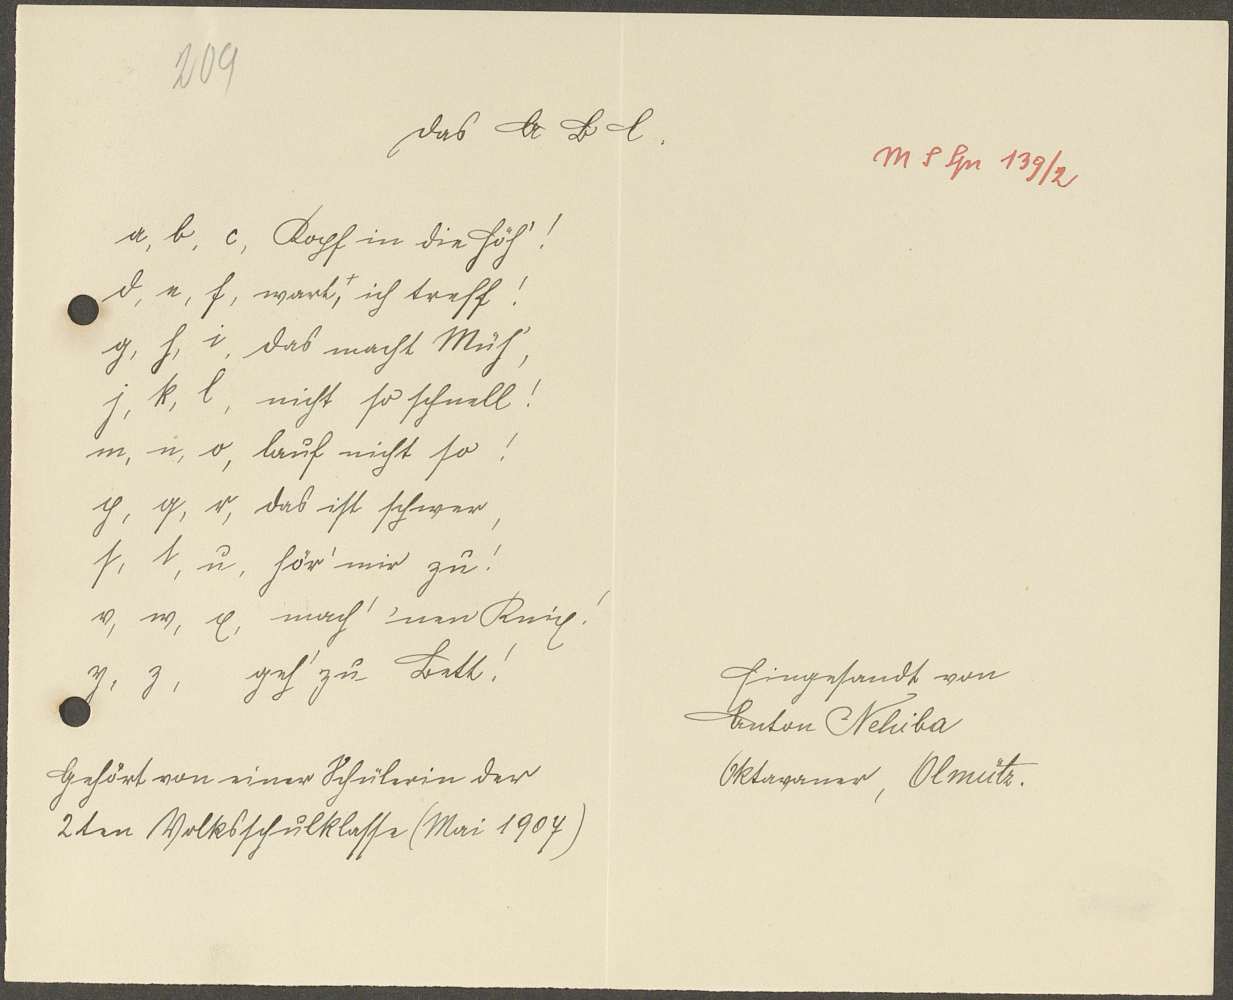 209
Das A B C.
M S Gn 139/2
a, b, c, Kopf in die Höh'!
d, e, f, wart', ich treff!
g, h, i, das macht Müh',
j, k, l, nicht so schnell!
m, n, o, lauf nicht so!
p, q, r, das ist schwer,
s, t, u, hör' mir zu!
v, w, x, mach' 'nen Knix!
y, z, geh' zu Bett!
Gehört von einer Schülerin der
2ten Volksschulklasse (Mai 1907)
Eingesandt von
Anton Nehiba
Oktavaner, Olmütz.